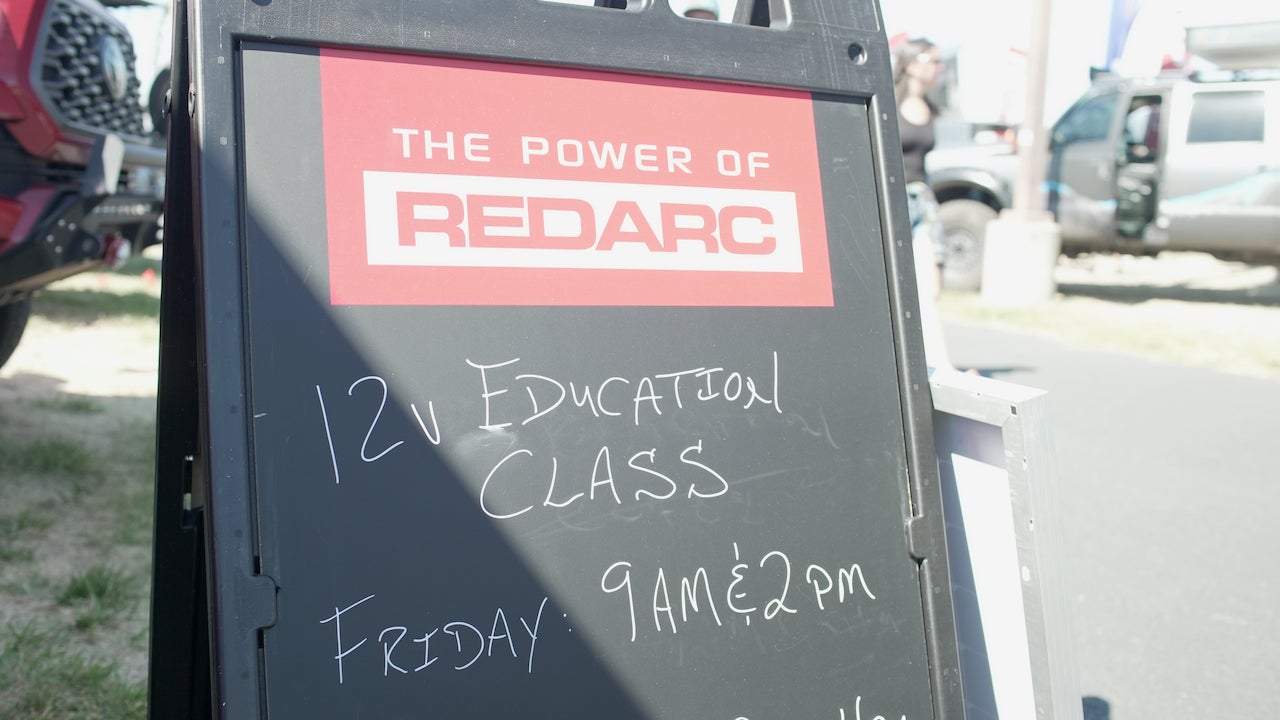 THE POWER OF
REDARC
12v EDUCATION
CLASS
FRIDAY: 9AM & 2PM